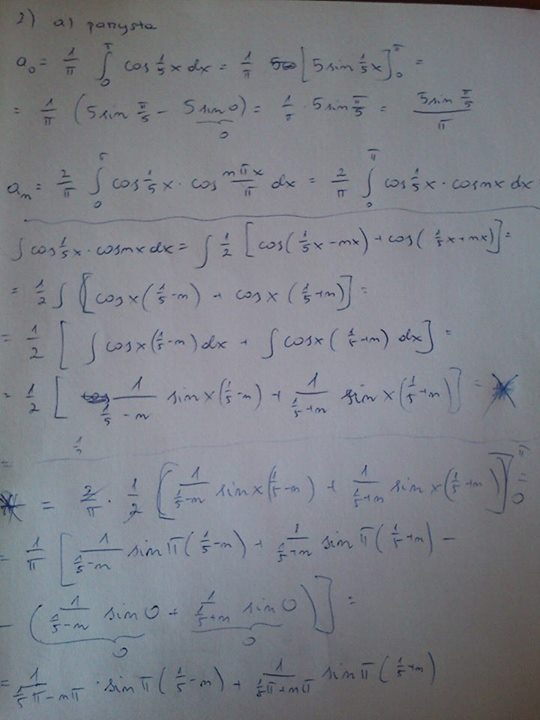 2) a) parzysta
a₀ = 1/π ∫₀^π cos 1/5 x dx = 1/π [5 sin 1/5 x]₀^π =
= 1/π (5 sin π/5 − 5 sin 0) = 1/π · 5 sin π/5 = 5 sin π/5 / π
0
aₙ = 2/π ∫₀^π cos 1/5 x · cos nπx/π dx = 2/π ∫₀^π cos 1/5 x · cos nx dx
∫ cos 1/5 x · cos nx dx = ∫ 1/2 [cos(1/5 x − nx) + cos(1/5 x + nx)] =
= 1/2 ∫ [cos x (1/5 − n) + cos x (1/5 + n)] =
= 1/2 [∫ cos x (1/5 − n) dx + ∫ cos x (1/5 + n) dx] =
= 1/2 [1/(1/5 − n) sin x (1/5 − n) + 1/(1/5 + n) sin x (1/5 + n)] = *
* = 2/π · 1/2 [1/(1/5 − n) sin x (1/5 − n) + 1/(1/5 + n) sin x (1/5 + n)]₀^π =
= 1/π [1/(1/5 − n) sin π (1/5 − n) + 1/(1/5 + n) sin π (1/5 + n) −
− (1/(1/5 − n) sin 0 + 1/(1/5 + n) sin 0)] =
0 0
= 1/(1/5 π − nπ) · sin π (1/5 − n) + 1/(1/5 π + nπ) sin π (1/5 + n)